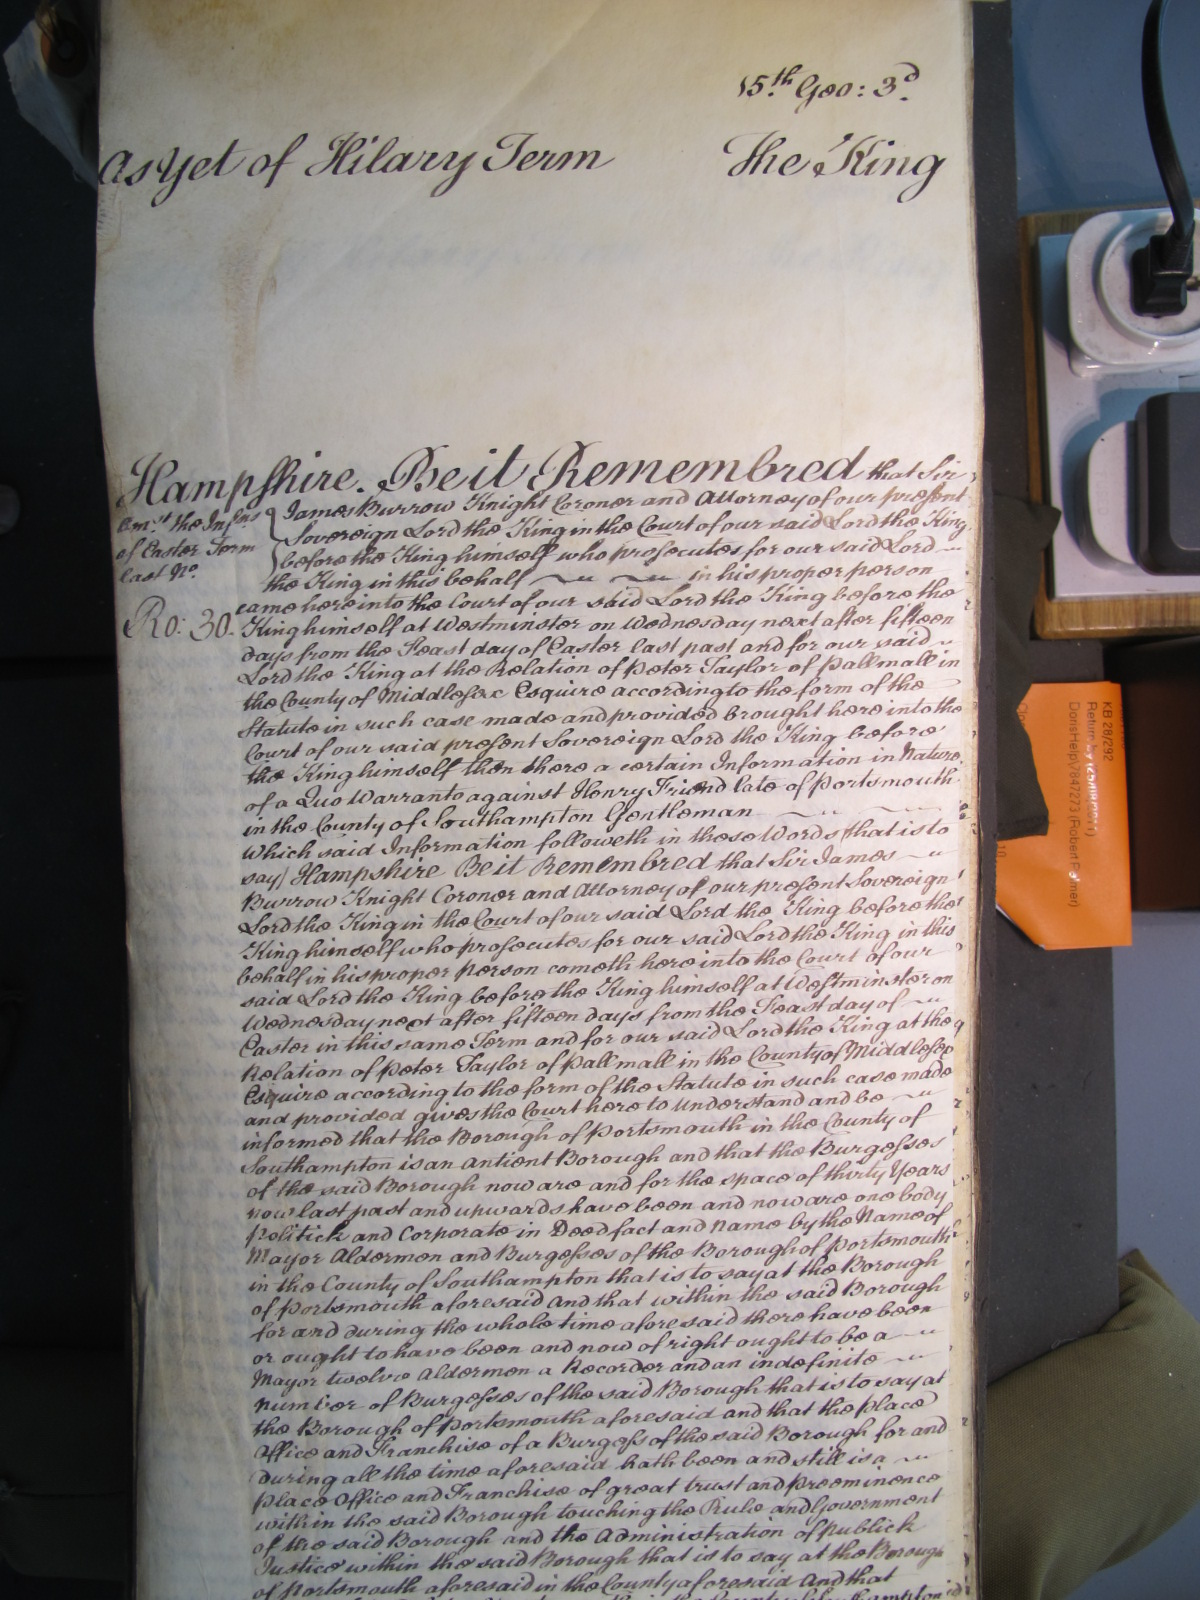 15.th Geo: 3.d
As Yet of Hilary Term The King
Hampshire. Be it Remembred that Sir
James Burrow Knight Coroner and Attorney of our present
Sovereign Lord the King in the Court of our said Lord the King
before the King himself who prosecutes for our said Lord
the King in this behalf in his proper person
Am.st the Inf.ns
of Easter Term
last No.
Ro: 30.
came here into the Court of our said Lord the King before the
King himself at Westminster on Wednesday next after fifteen
days from the Feast day of Easter last past and for our said
Lord the King at the Relation of Peter Taylor of Pallmall in
the County of Middlesex Esquire according to the form of the
Statute in such case made and provided brought here into the
Court of our said present Sovereign Lord the King before
the King himself then there a certain Information in Nature
of a Quo Warranto against Henry Friend late of Portsmouth
in the County of Southampton Gentleman
Which said Information followeth in these Words that is to
say) Hampshire Be it Remembred that Sir James
Burrow Knight Coroner and Attorney of our present Sovereign
Lord the King in the Court of our said Lord the King before the
King himself who prosecutes for our said Lord the King in this
behalf in his proper person cometh here into the Court of our
said Lord the King before the King himself at Westminster on
Wednesday next after fifteen days from the Feast day of
Easter in this same Term and for our said Lord the King at the
Relation of Peter Taylor of Pallmall in the County of Middlesex
Esquire according to the form of the Statute in such case made
and provided gives the Court here to Understand and be
informed that the Borough of Portsmouth in the County of
Southampton is an antient Borough and that the Burgesses
of the said Borough now are and for the space of thirty Years
now last past and upwards have been and now are one body
Politick and Corporate in Deed fact and Name by the Name of
Mayor Aldermen and Burgesses of the Borough of Portsmouth
in the County of Southampton that is to say at the Borough
of Portsmouth aforesaid And that within the said Borough
for and during the whole time aforesaid there have been
or ought to have been and now of right ought to be a
Mayor twelve Aldermen a Recorder and an indefinite
number of Burgesses of the said Borough that is to say at
the Borough of Portsmouth aforesaid and that the place
Office and Franchise of a Burgess of the said Borough for and
during all the time aforesaid hath been and still is a
place Office and Franchise of great trust and Preeminence
within the said Borough touching the Rule and Government
of the said Borough and the Administration of publick
Justice within the said Borough that is to say at the Borough
of Portsmouth aforesaid in the County aforesaid And that
KB 28/292
Return by
DorisHelp/V847273 (Robert Palmer)